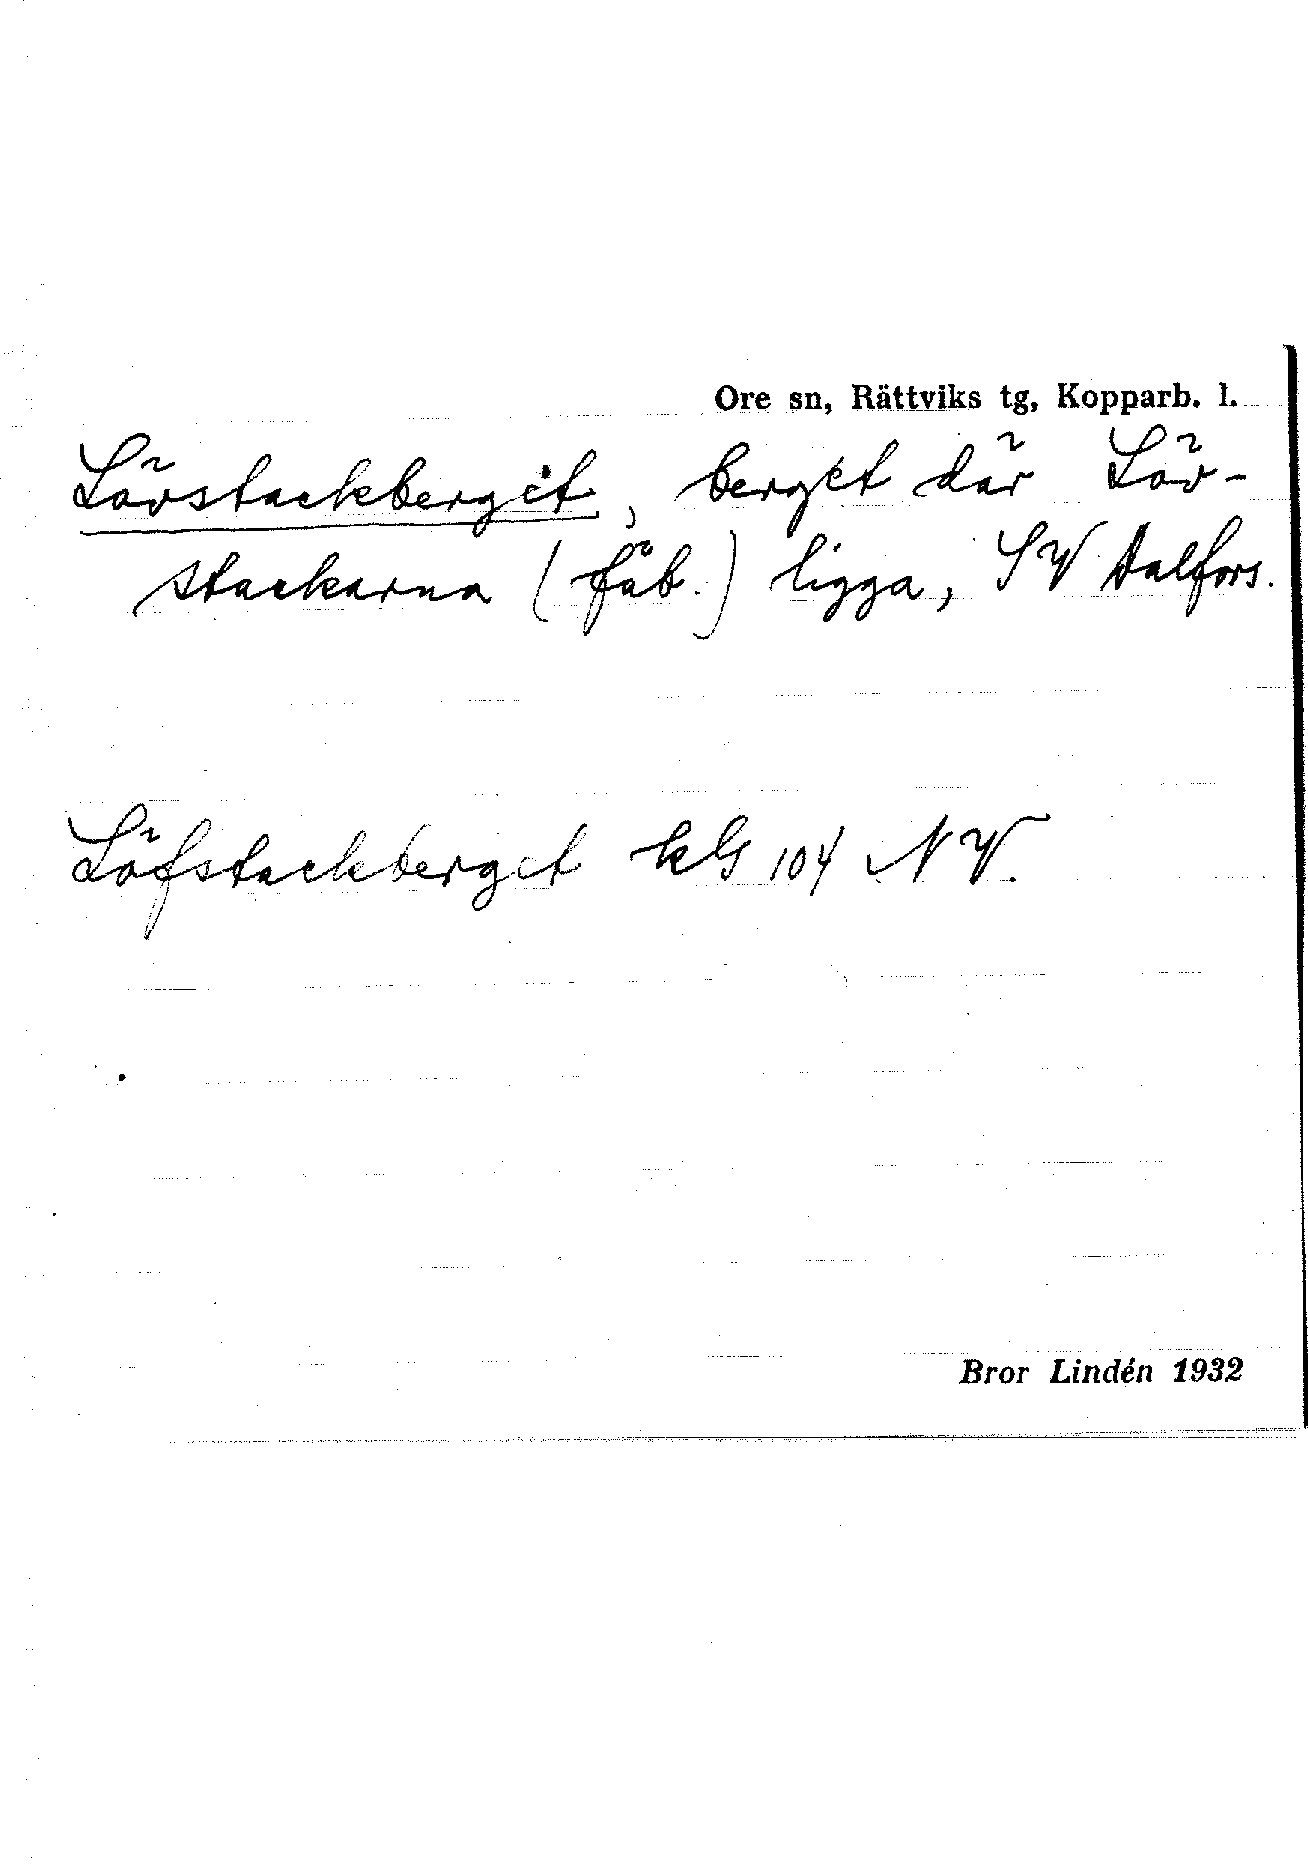 Ore sn, Rättviks tg, Kopparb. l.
Lövstackberget, berget där Löv-
stackarna (fäb.) ligga, SV Dalfors.
Löfstackberget kG 104 NV.
Bror Lindén 1932